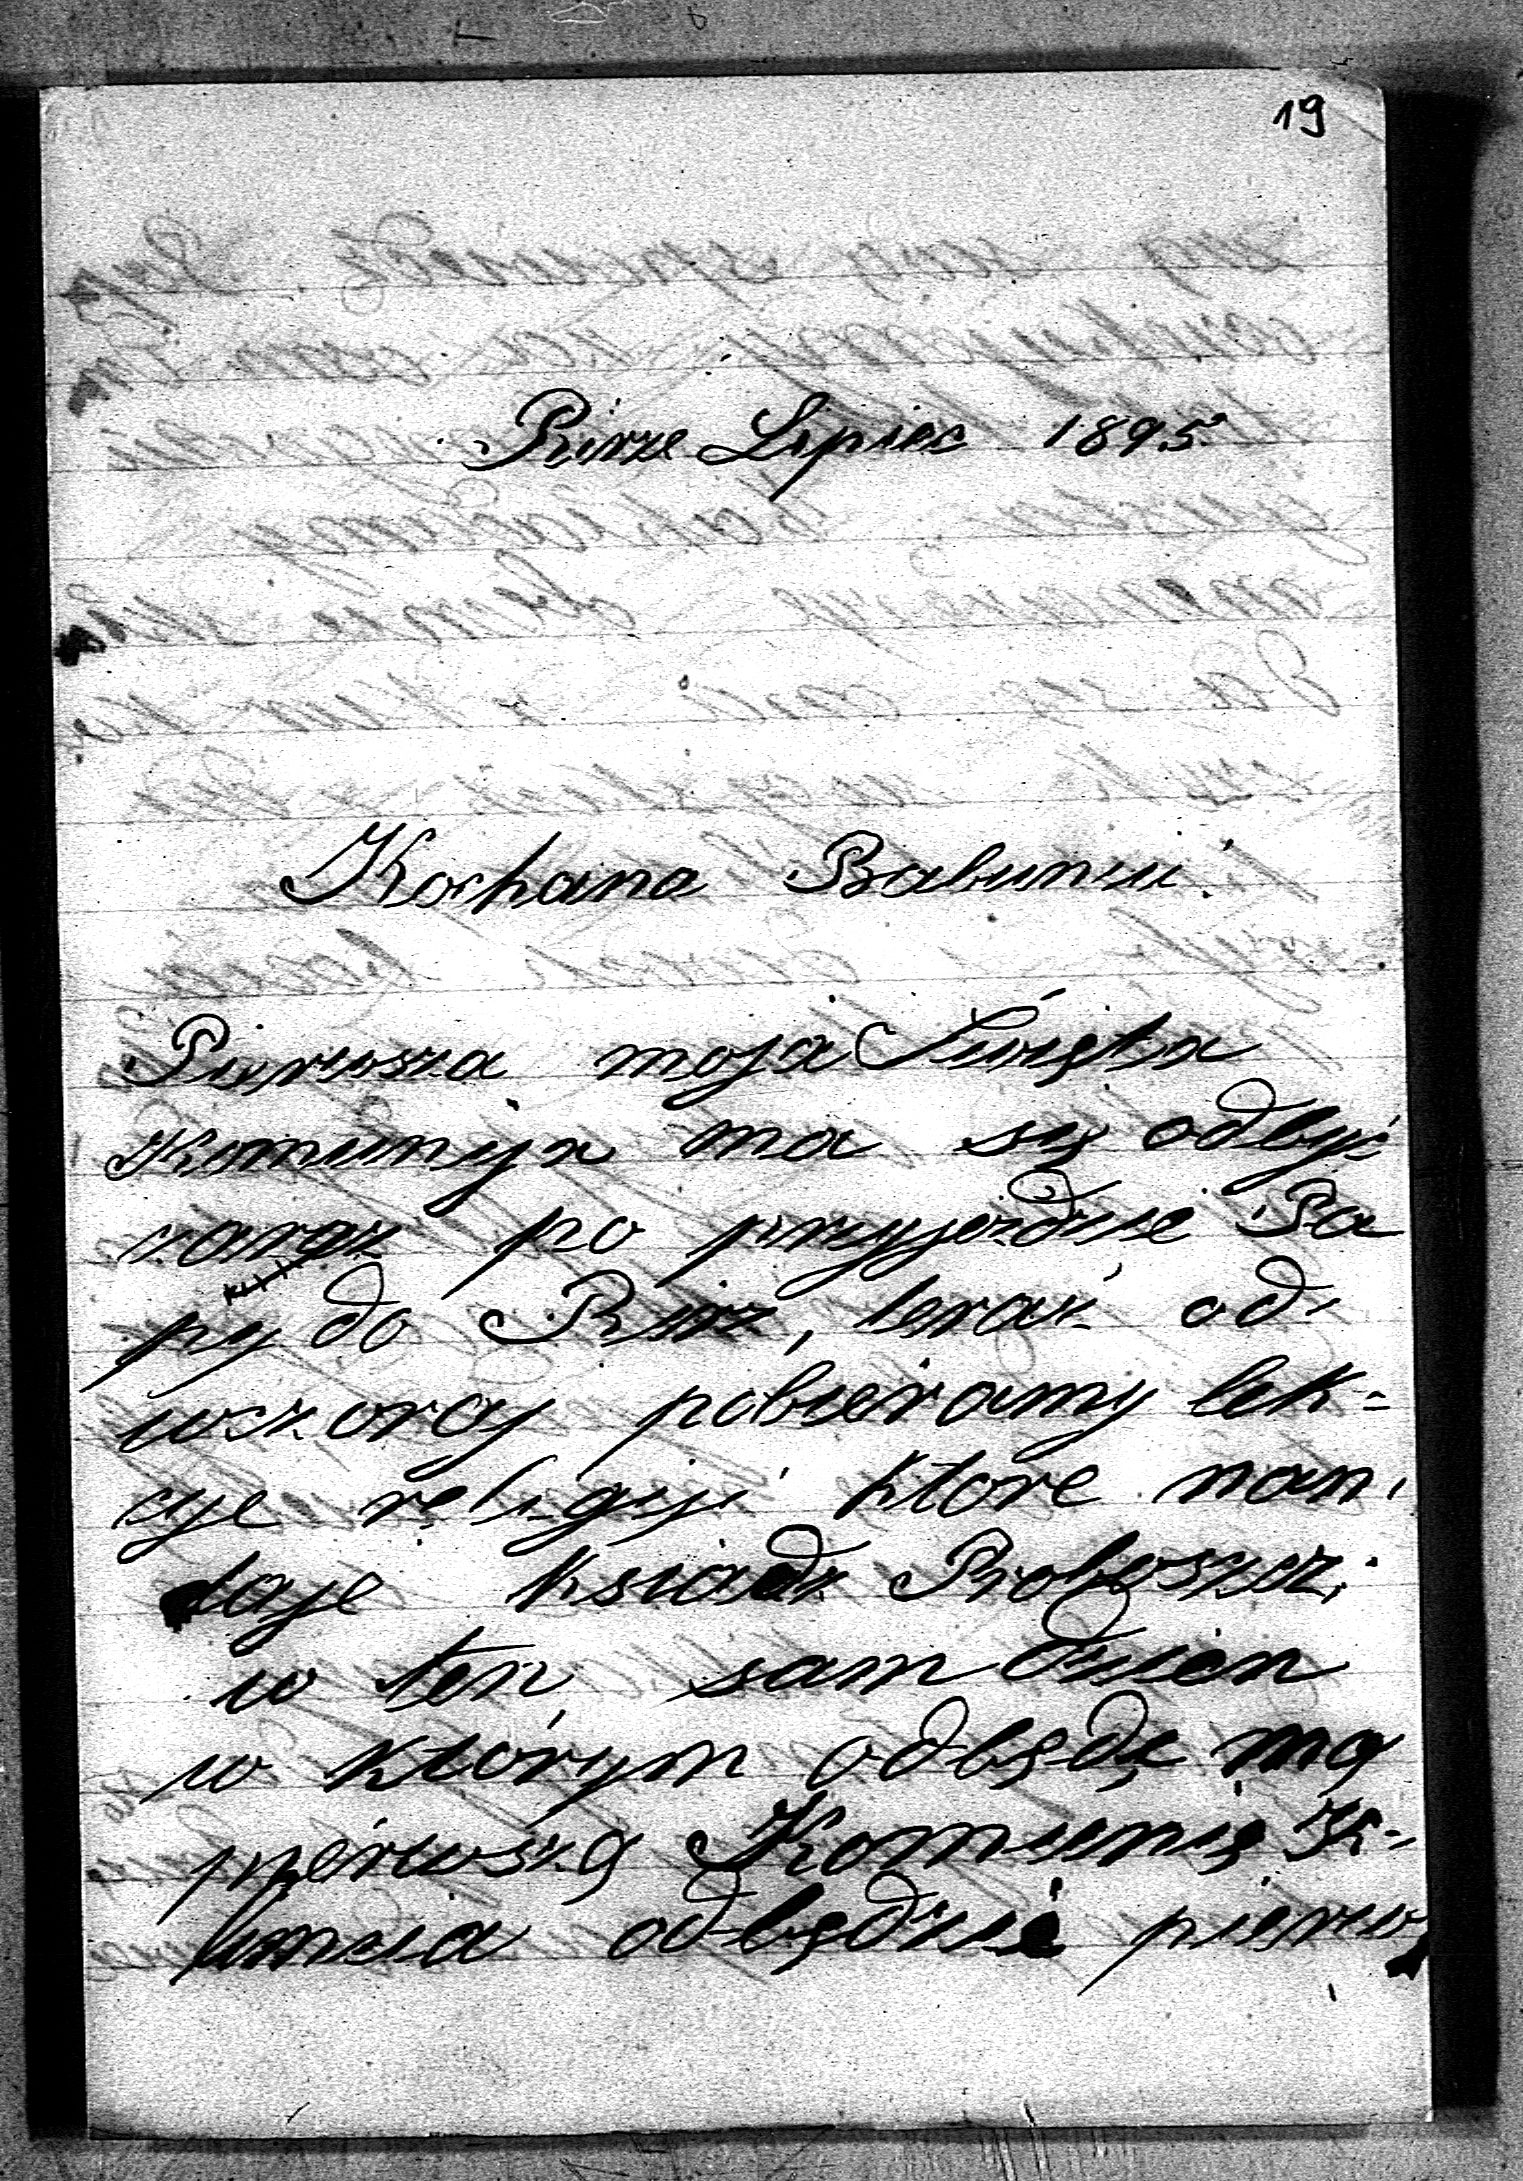 19
Birże Lipiec 1895
Kochana Babuniu!
Pierwsza moja Święta
Komunija ma się odbyć
zaraz po przyjezdzie Pa
py do Birż, teraz od
wczoraj pobieramy lek=
cye religiji które nam
daje ksiądz Proboszcz.
w ten sam dzień
w którym odbędę mą
pierwszą Komunię K-
imcia odbędzie pierw